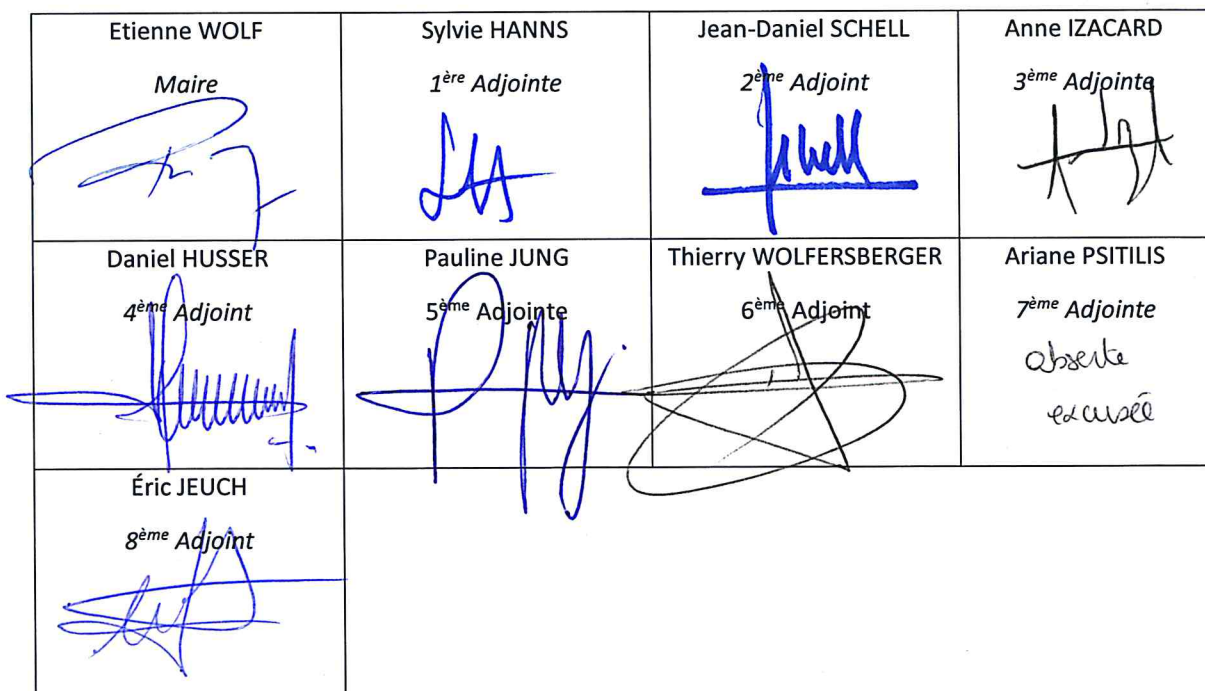 Etienne WOLF
Maire
Sylvie HANNS
1ère Adjointe
Jean-Daniel SCHELL
2ème Adjoint
Anne IZACARD
3ème Adjointe
Daniel HUSSER
4ème Adjoint
Pauline JUNG
5ème Adjointe
Thierry WOLFERSBERGER
6ème Adjoint
Ariane PSITILIS
7ème Adjointe
absente
excusée
Éric JEUCH
8ème Adjoint